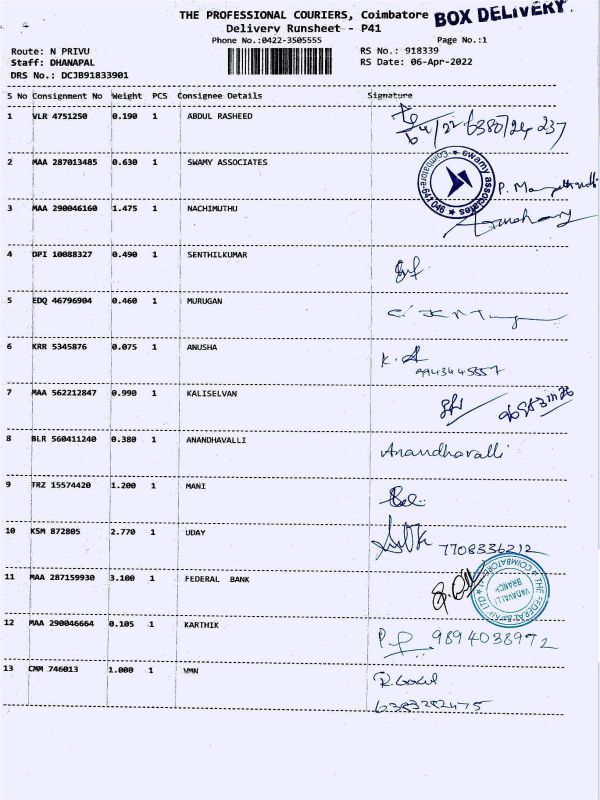 THE PROFESSIONAL COURIERS, Coimbatore BOX DELIVERY
Delivery Runsheet - P41
Phone No.:0422-3505555 Page No.:1
Route: N PRIVU RS No.: 918339
Staff: DHANAPAL RS Date: 06-Apr-2022
DRS No.: DCJB91833901
S No Consignment No Weight PCS Consignee Details Signature
1 VLR 4751250 0.190 1 ABDUL RASHEED
2 MAA 287013485 0.630 1 SWAMY ASSOCIATES
swamy associates ★ Coimbatore-641 046 ★
3 MAA 290046160 1.475 1 NACHIMUTHU
4 DPI 10088327 0.490 1 SENTHILKUMAR
5 EDQ 46796904 0.460 1 MURUGAN
6 KRR 5345876 0.075 1 ANUSHA K. A
9943445557
7 MAA 562212847 0.990 1 KALISELVAN
8 BLR 560411240 0.380 1 ANANDHAVALLI Anandhavalli
9 TRZ 15574420 1.200 1 MANI
10 KSM 872805 2.770 1 UDAY 7708336212
11 MAA 287159930 3.100 1 FEDERAL BANK
★ THE FEDERAL BANK LTD ★ COIMBATORE VADAVALLI BRANCH
12 MAA 290046664 0.105 1 KARTHIK 9894038972
13 CMM 746013 1.000 1 VMN R. Gokul
6383282475